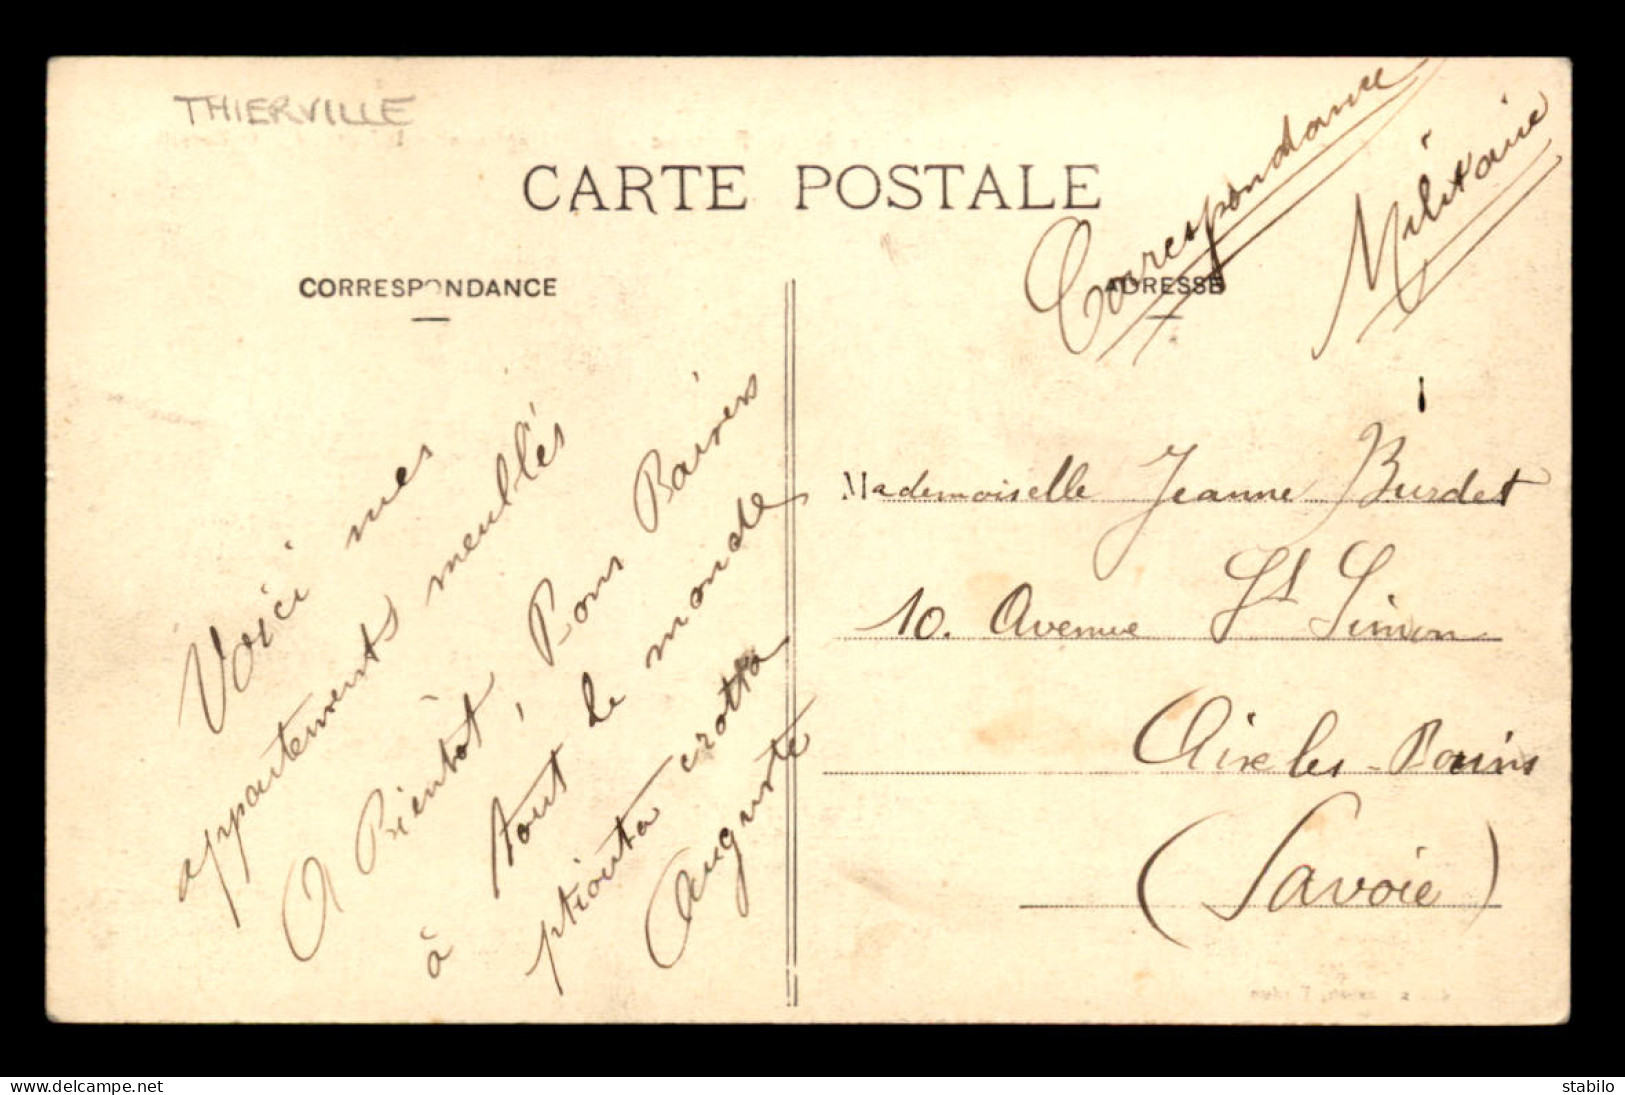 THIERVILLE
CARTE POSTALE
Correspondance
Militaire
CORRESPONDANCE
ADRESSE
Voici mes
appartements meublés
A Bientôt, Bons Baisers
à tout le monde
Auguste
Mademoiselle Jeanne Burdet
10. Avenue St Simon
Aix les-Bains
(Savoie)
www.delcampe.net
stabilo